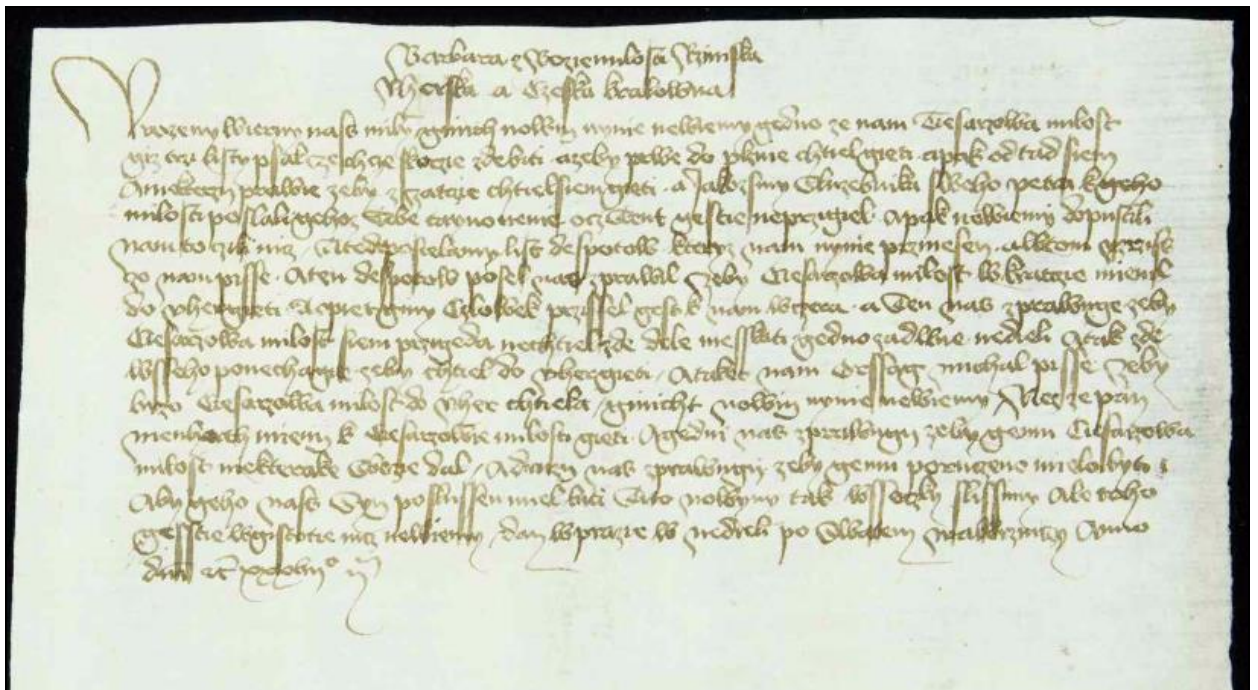 Barbara z Bozie milosti Rzimska
Vherska a Czeska kralowna
Vrozeny wierny nass mily ginich nowin nynie newiemy gedno ze nam Ciesarzowa milost
giz trzi listy psal ze chcze skorzie zde biti a zeby prawe do plznie chtiel gieti a pak od tud siem
A niekterzi prawie zeby z zatcze chtiel siem gieti a Jakozsmy Sluzebnika sweho petra k geho
milosti poslali gehoz tebe tayno nenie ocz Tent gestie neprzigiel A pak newiemy
nam to nicz A ted posielamy list despotow kteryz nam nynie przinesen
zo nam pisse A ten despotow posel nas zprawil Zeby Ciesarzowa milost w kratcze miel
do vher gieti A Czlowek przissel gest k nam wczera a Ten nas zprawuge zeby
Ciesarzowa milost siem przigeda nechtiel zde dele messkati gedno za dwie nedieli A tak zde
wsseho ponechagie zeby chtiel do vher gieti A take nam Orssag michal pisse zeby
brzo Ciesarzowa milost do vher chtiela ginicht nowin nynie newiemy Nez ze pan
menhart mieni k Ciesarzowie milosti gieti A gedni nas zprawugij zeby gemu Ciesarzowa
milost niekterake dal A druzij nas zprawugij zeby gemu poruczeno mielo byti
Aby geho nass Syn poslussen miel biti Tito nowiny tak wsseczky slissimy Ale toho
gesstie w gistotie nicz newiemy dan w prazie w nedieli po Swatem Anno
domini etc xxxvii°